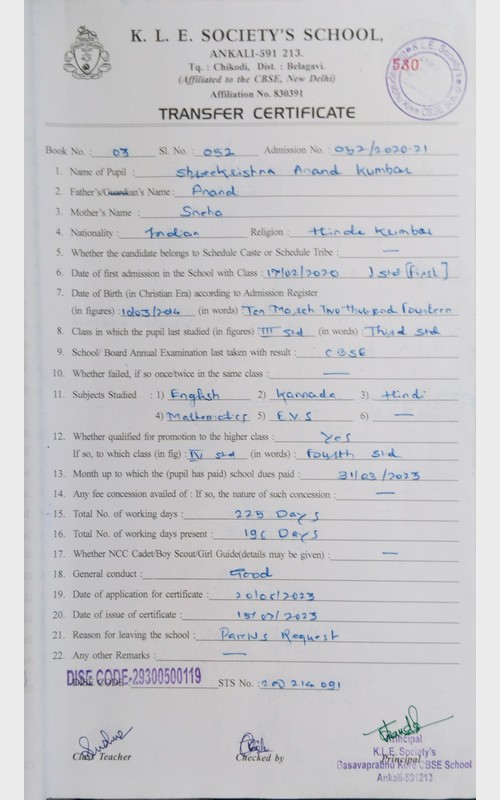 K. L. E. SOCIETY'S SCHOOL,
ANKALI-591 213.
Tq. : Chikodi, Dist. : Belagavi.
(Affiliated to the CBSE, New Delhi)
Affiliation No. 830391
580
TRANSFER CERTIFICATE
Book No. : 03 Sl. No. : 052 Admission No. : 052/2020-21
1. Name of Pupil : Shreekrishna Anand Kumbar
2. Father's/Guardian's Name : Anand
3. Mother's Name : Sneha
4. Nationality : Indian Religion : Hindu Kumbar
5. Whether the candidate belongs to Schedule Caste or Schedule Tribe : —
6. Date of first admission in the School with Class : 17/02/2020 I std [First]
7. Date of Birth (in Christian Era) according to Admission Register
(in figures) : 10/03/2014 (in words) Ten March Two thousand Fourteen
8. Class in which the pupil last studied (in figures) III std (in words) : Third std
9. School/ Board Annual Examination last taken with result : CBSE
10. Whether failed, if so once/twice in the same class : —
11. Subjects Studied : 1) English 2) Kannada 3) Hindi
4) Mathematics 5) EVS 6) —
12. Whether qualified for promotion to the higher class : Yes
If so, to which class (in fig) : IV std (in words) : Fourth std
13. Month up to which the (pupil has paid) school dues paid : 31/03/2023
14. Any fee concession availed of : If so, the nature of such concession : —
15. Total No. of working days : 225 Days
16. Total No. of working days present : 196 Days
17. Whether NCC Cadet/Boy Scout/Girl Guide(details may be given) : —
18. General conduct : Good
19. Date of application for certificate : 20/06/2023
20. Date of issue of certificate : 15/07/2023
21. Reason for leaving the school : Parents Request
22. Any other Remarks : —
DISE CODE-29300500119 STS No. : 202214091
Class Teacher Checked by Principal
Principal
K.L.E. Society's
Basavaprabhu Kore CBSE School
Ankali-591213